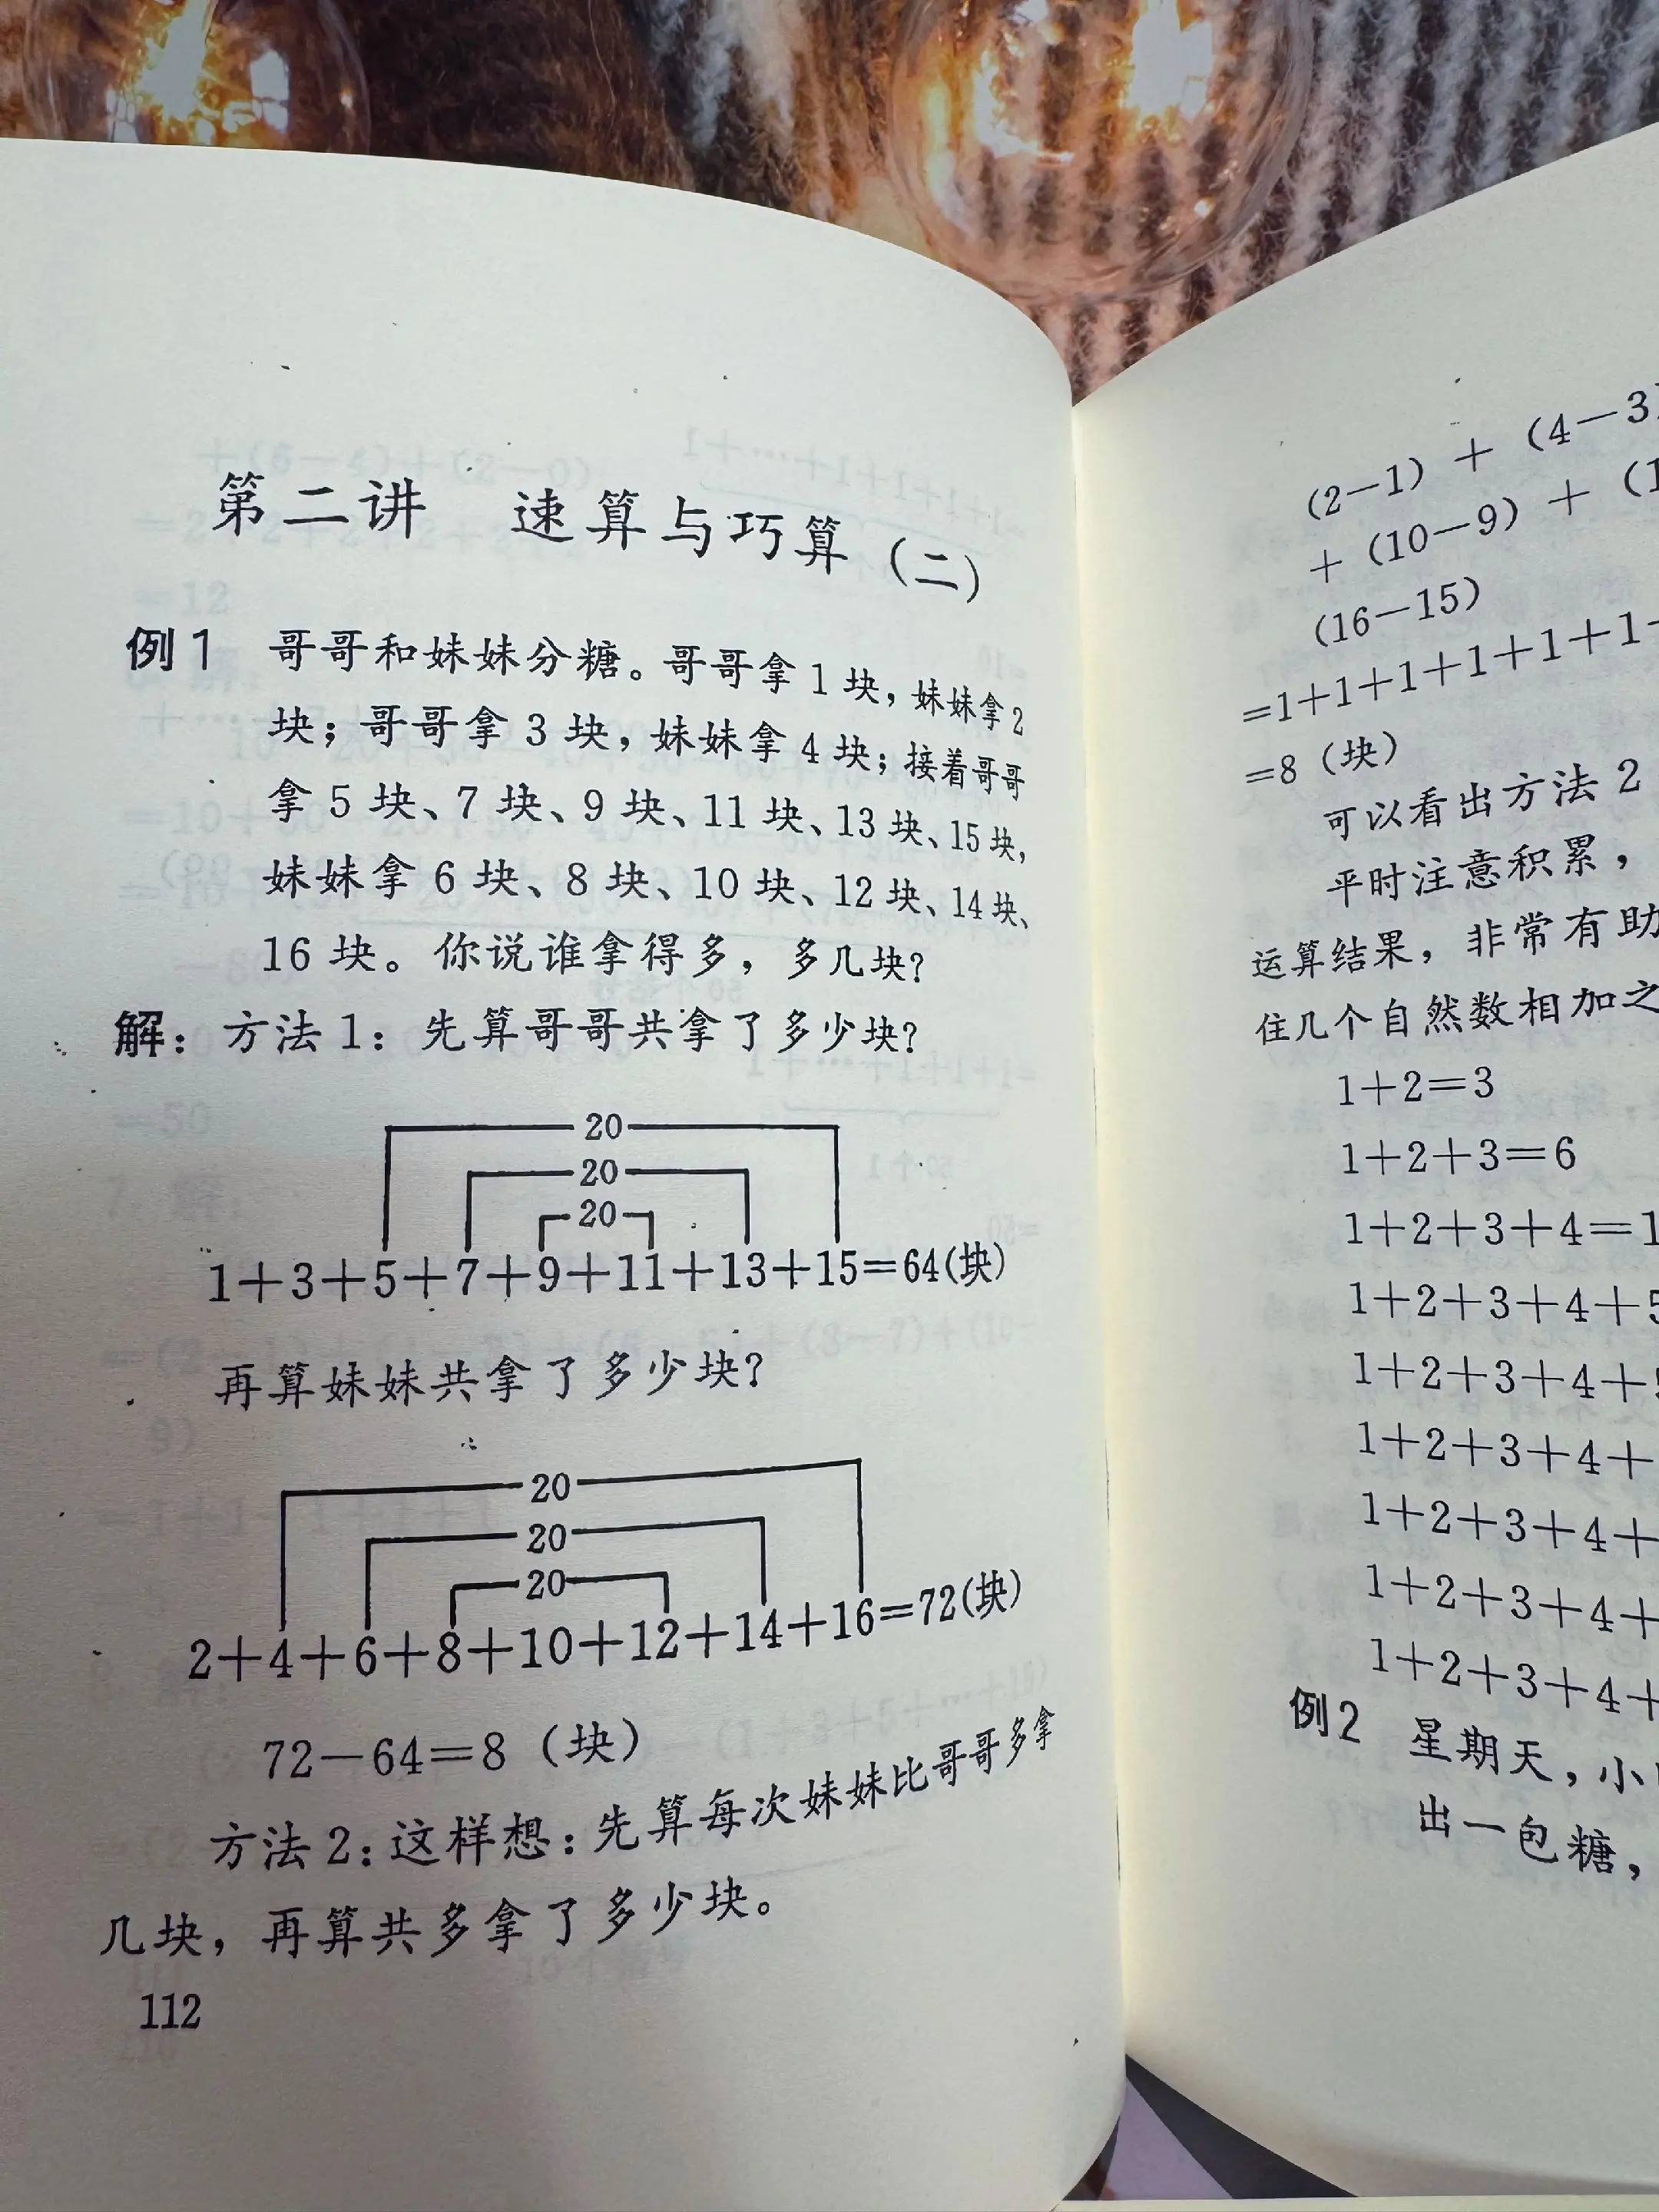 第二讲 速算与巧算（二）
例1 哥哥和妹妹分糖。哥哥拿1块，妹妹拿2
块；哥哥拿3块，妹妹拿4块；接着哥哥
拿5块、7块、9块、11块、13块、15块，
妹妹拿6块、8块、10块、12块、14块、
16块。你说谁拿得多，多几块？
解：方法1：先算哥哥共拿了多少块？
20
20
20
1+3+5+7+9+11+13+15=64(块)
再算妹妹共拿了多少块？
20
20
20
2+4+6+8+10+12+14+16=72(块)
72－64=8（块）
方法2：这样想：先算每次妹妹比哥哥多拿
几块，再算共多拿了多少块。
112
(2－1) + (4－3)
+ (10－9) + (1
(16－15)
=1+1+1+1+1+1
=8（块）
可以看出方法2
平时注意积累，
运算结果，非常有助
住几个自然数相加之
1+2=3
1+2+3=6
1+2+3+4=1
1+2+3+4+5
1+2+3+4+5
1+2+3+4+
1+2+3+4+
1+2+3+4+
1+2+3+4+
例2 星期天，小
出一包糖，